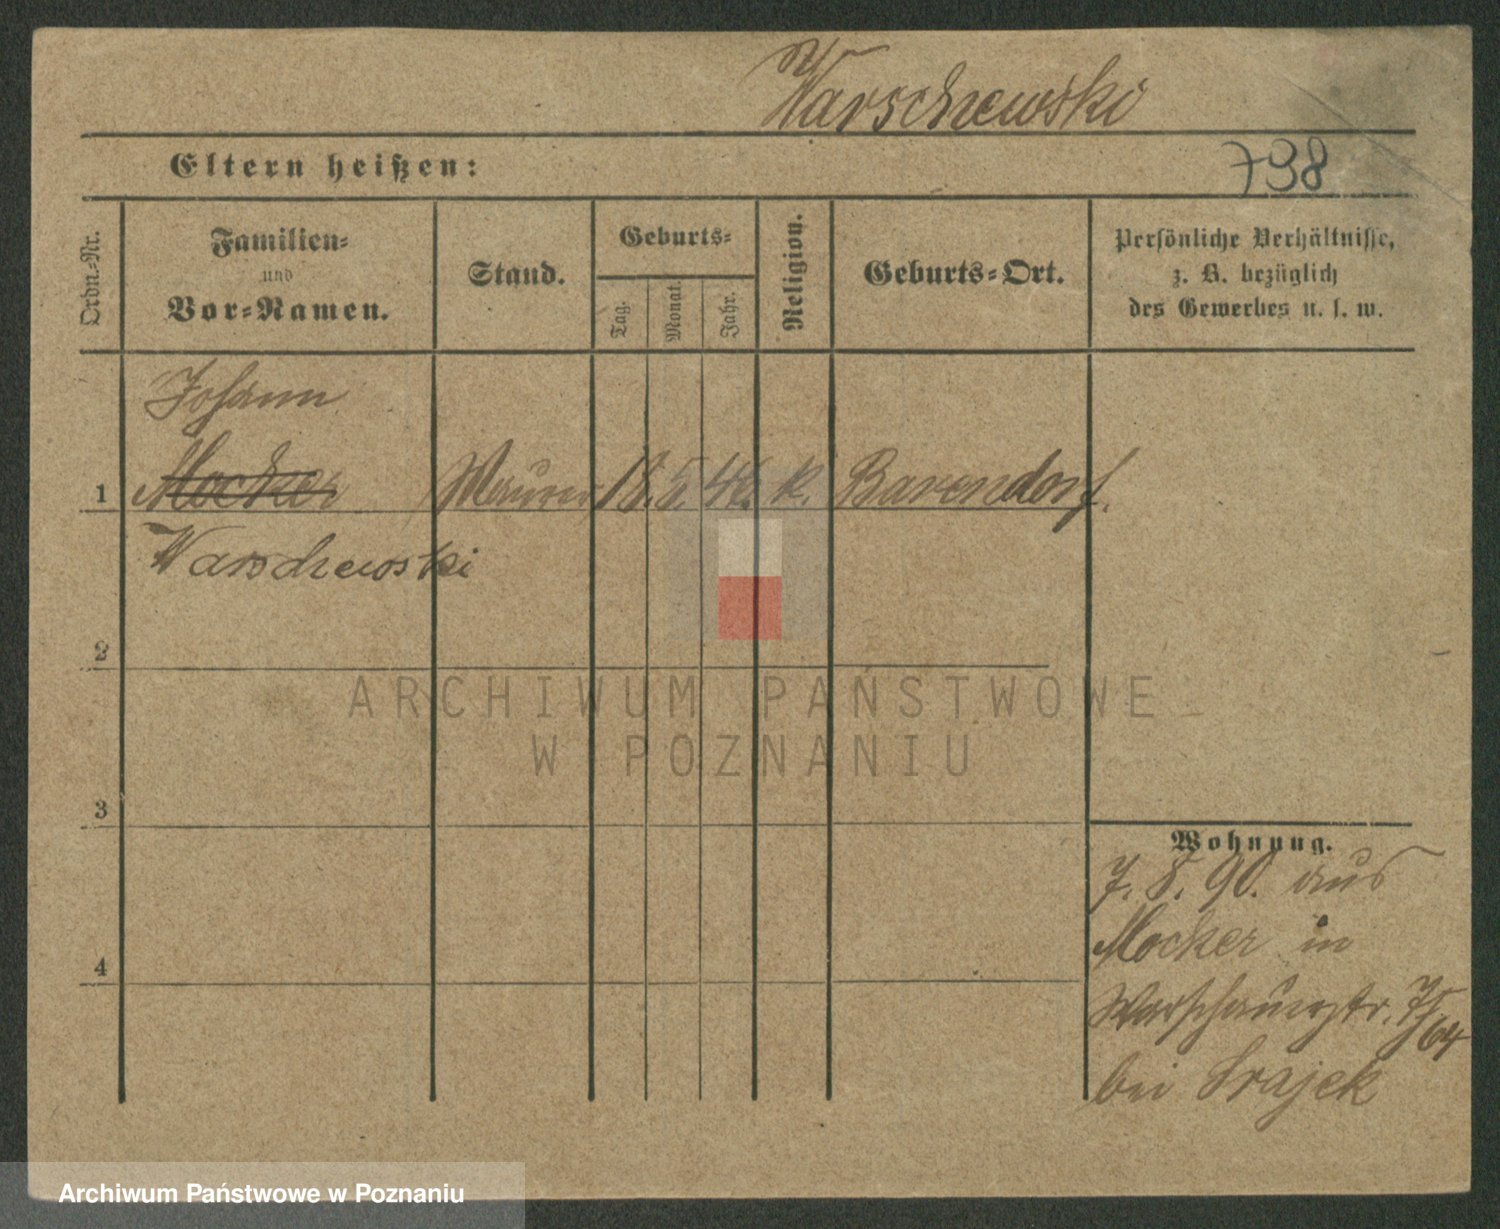 Warschewski
Eltern heißen:
738
Ordn.-Nr.
Familien-
und
Vor-Namen.
Stand.
Geburts-
Tag.
Monat.
Jahr.
Religion.
Geburts-Ort.
Persönliche Verhältnisse,
z. B. bezüglich
des Gewerbes u. s. w.
Johann
1 Mocker Maurer 18. 5. 46. k. Barendorf.
Warschewski
2
3
4
Wohnung.
7. 8. 90. aus
Mocker in
Warschauerstr. 7/64
bei Srajek
ARCHIWUM PAŃSTWOWE
W POZNANIU
Archiwum Państwowe w Poznaniu